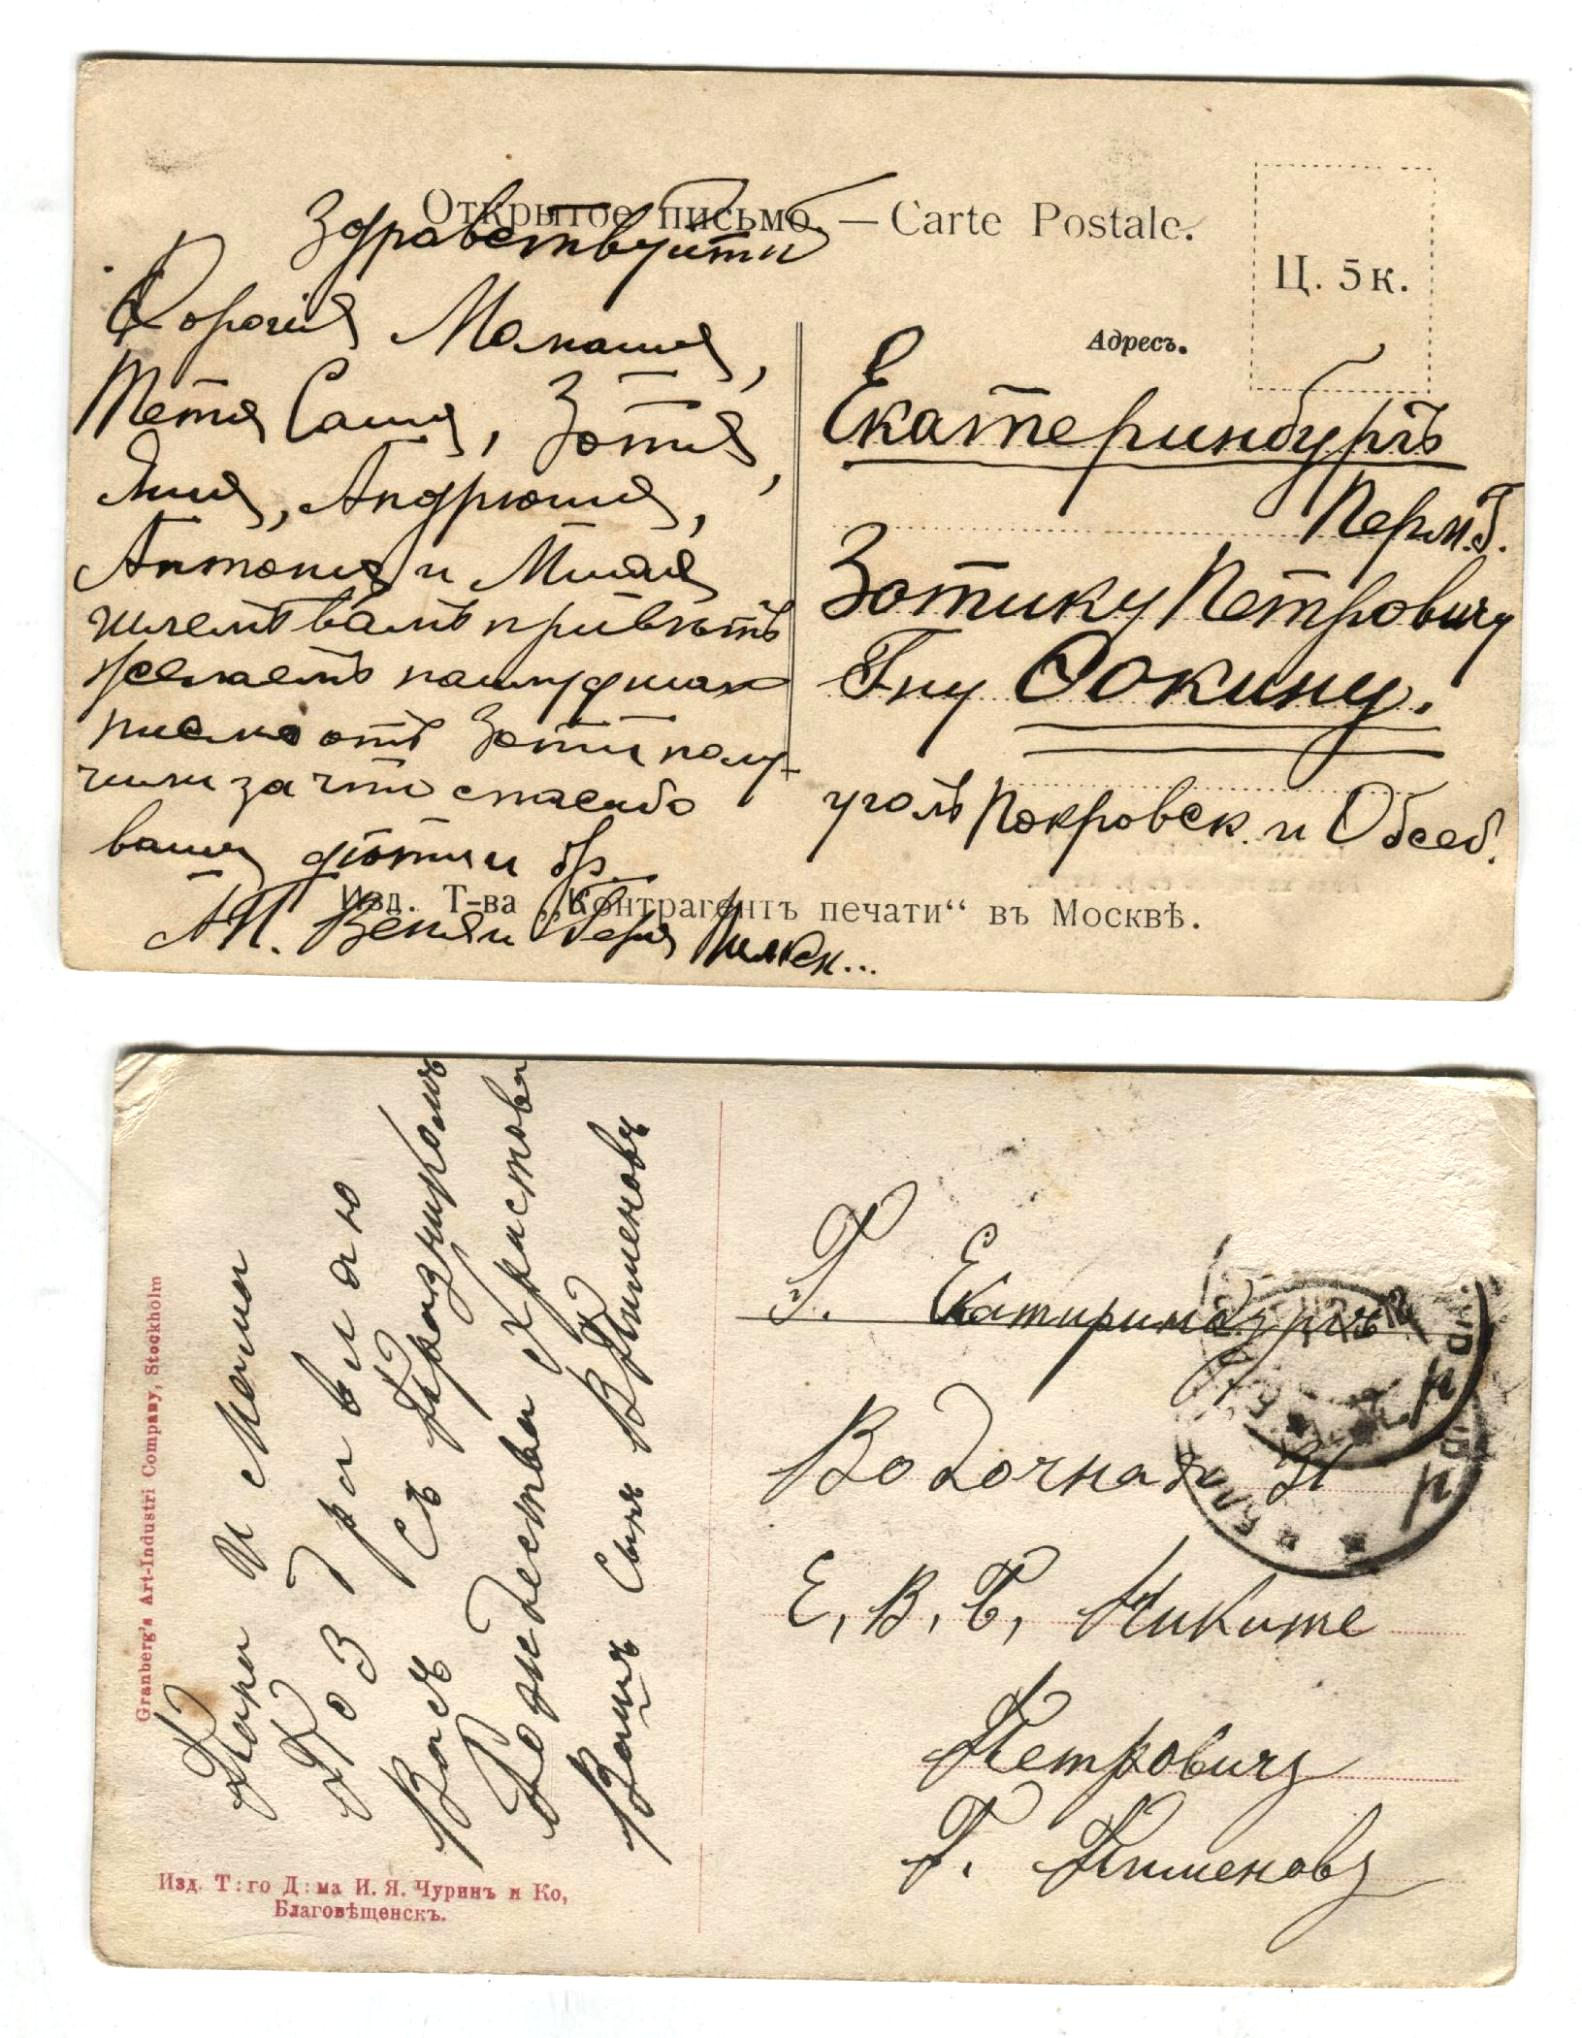 Открытое письмо. — Carte Postale.
Ц. 5 к.
Адресъ.
Здравствуйти
Дорогія Мамаша,
Тетя Саша, Зотя,
Яша, Андрюша,
Антоша и Миша
шлемъ вамъ приветъ
Желаемъ
писмо отъ Зоти полу-
чили за что спасибо
ваши дѣти и бр.
АП. Веня и Геря
Екатеринбургъ
Перм. Г.
Зотику Петровичу
Гну Фокину.
уголъ Покровск. и Обсеб.
Изд. Т-ва „Контрагентъ печати“ въ Москвѣ.
Папа и Мама
Поздравляю
Васъ съ Праздникомъ
Рождества Христова
Вашъ Сынъ В Пименовъ
Granberg's Art-Industri Company, Stockholm
Изд. Т:го Д:ма И. Я. Чуринъ и Ко,
Благовѣщенскъ.
Г. Екатиринбургъ
Водочная 31
Е, В, Б, Никите
Петровичу
Г. Пименову